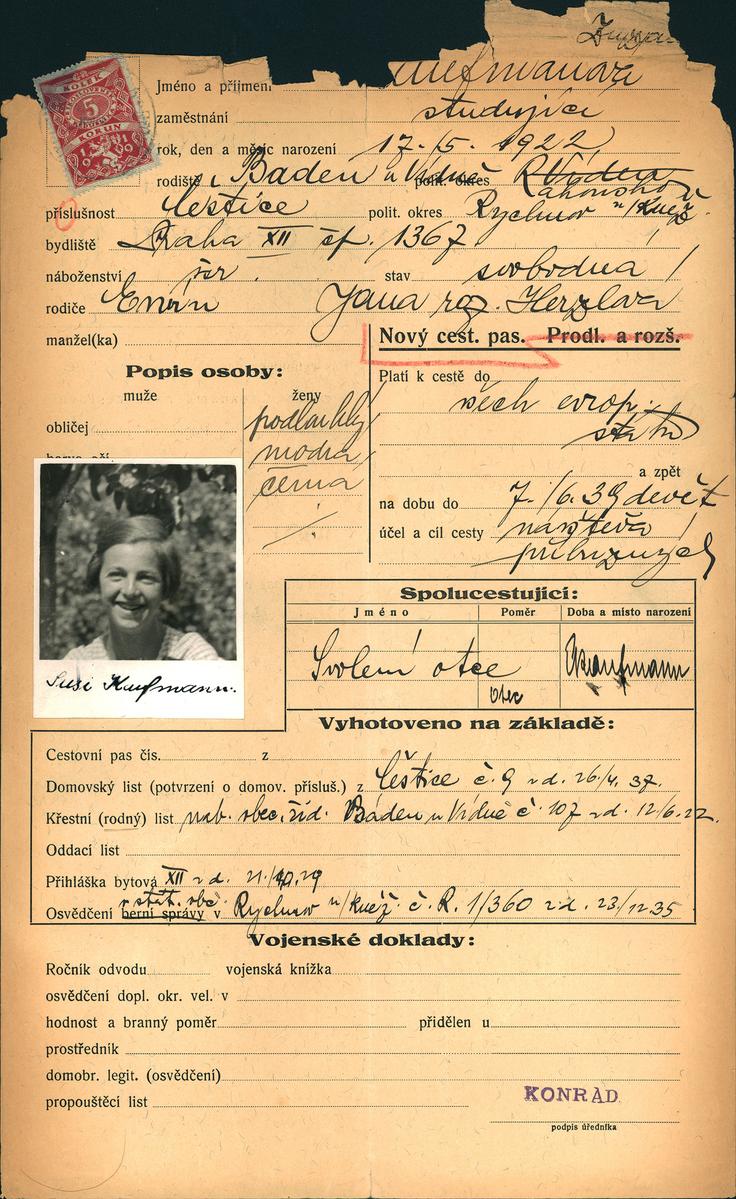 KOLEK
5
KORUN
Jméno a příjmení
zaměstnání studující
rok, den a měsíc narození 17./5. 1922
rodiště Baden u Vídně polit. okres
příslušnost Leštice polit. okres Rychnov n/Kněž.
bydliště Praha XII čp. 1367
náboženství stav svobodná
rodiče Ervín Jana roz. Herzlova
manžel(ka)
Nový cest. pas. Prodl. a rozš.
Popis osoby:
muže ženy
Platí k cestě do
všech evrop.
států
obličej podlouhlý
modrá
černá
a zpět
na dobu do 7./6. 39 devět
účel a cíl cesty návštěva
příbuzných
Susi Kaufmann.
Spolucestující:
Jméno Poměr Doba a místo narození
Svolení otce Kaufmann
otec
Vyhotoveno na základě:
Cestovní pas čís. z
Domovský list (potvrzení o domov. přísluš.) z Leštice č. 9 z d. 26/4. 37.
Křestní (rodný) list náb. obec. žid. Baden u Vídně č. 107 z d. 12/6. 22.
Oddací list
Přihláška bytová XII z d.
Osvědčení berní správy v Rychnov n/Kněž. č. R. 1/360 z d. 23/12.35
Vojenské doklady:
Ročník odvodu vojenská knížka
osvědčení dopl. okr. vel. v
hodnost a branný poměr přidělen u
prostředník
domobr. legit. (osvědčení)
propouštěcí list
KONRÁD
podpis úředníka